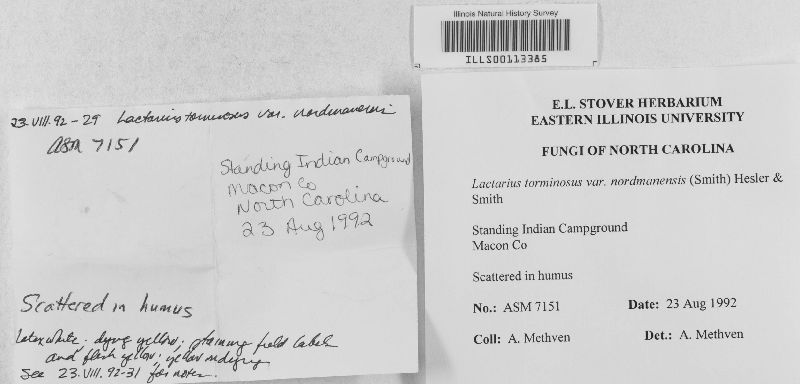 Illinois Natural History Survey
ILLS00113385
23.VIII.92-29 Lactarius torminosus var. nordmanensis
ASM 7151
Standing Indian Campground
Macon Co
North Carolina
23 Aug 1992
Scattered in humus
Latex white. drying yellow. staining field labels
and flesh yellow. yellow
See 23.VIII.92-31 for notes.
E.L. STOVER HERBARIUM
EASTERN ILLINOIS UNIVERSITY
FUNGI OF NORTH CAROLINA
Lactarius torminosus var. nordmanensis (Smith) Hesler &
Smith
Standing Indian Campground
Macon Co
Scattered in humus
No.: ASM 7151 Date: 23 Aug 1992
Coll: A. Methven Det.: A. Methven